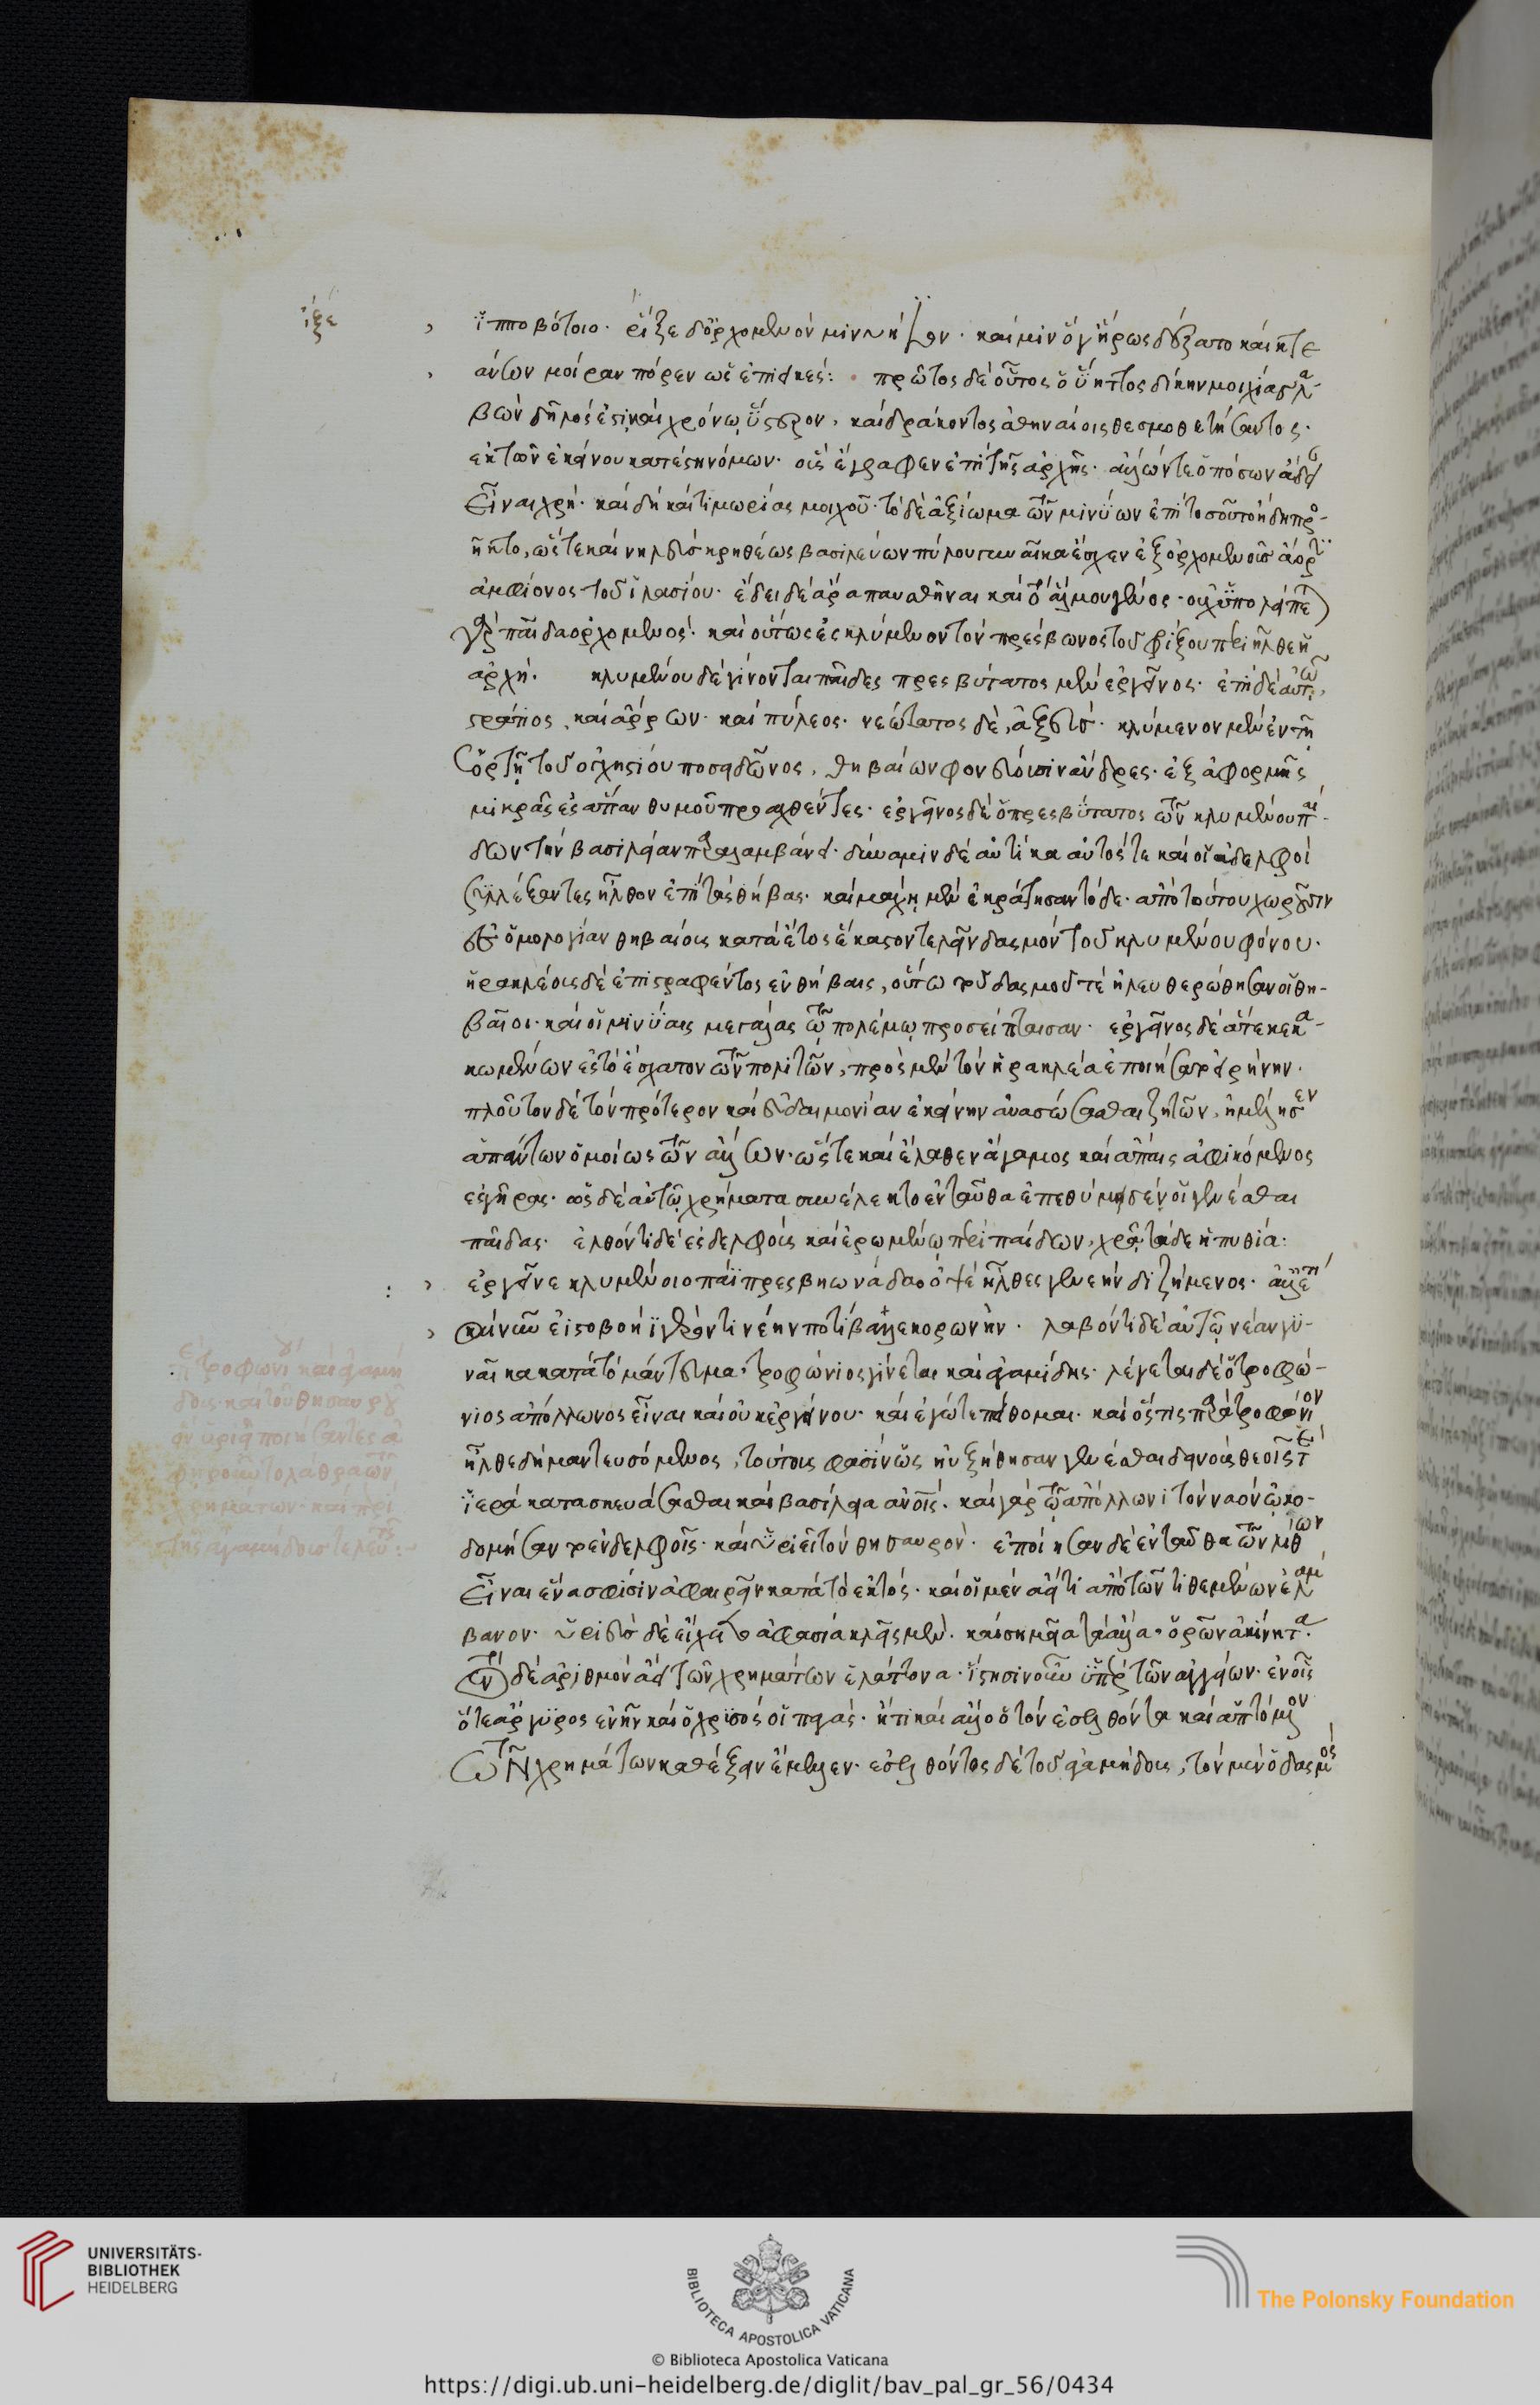 ἷξε
ἱπποβότοιο· εἷξε δ' ὀρχομενὸν μινυήϊον· καὶ μιν ὅγ' ἥρως δέξατο καὶ κτε
άνων μοῖραν πόρεν ὡς ἐπιεικές: πρῶτος δὲ οὗτος ὁ ὕηττος δίκην μοιχίας λα
βὼν δῆλός ἐστι· καὶ χρόνῳ ὕστερον, καὶ δράκοντος ἀθηναίοις θεσμοθετήσαντος·
ἐκ τῶν ἐκείνου κατέστη νόμων· οὓς ἔγραφεν ἐπὶ τῆς ἀρχῆς· ἄλλων τε ὁπόσων ἄδειαν
εἶναι χρή· καὶ δὴ καὶ τιμωρίας μοιχοῦ· τὸ δὲ ἀξίωμα τῶν μινυῶν ἐπὶ τοσοῦτον ἤδη προ-
ῆκτο, ὥστε καὶ νηλεὺς κρηθέως βασιλεύων πύλου γυναῖκα ἔσχεν ἐξ ὀρχομενοῦ χλῶριν
ἀμφίονος τοῦ ἰασίου· ἔδει δὲ ἄρα παυσθῆναι καὶ τὸ ἄλμου γένος· οὐ γὰρ ὑπολείπει
παῖδα ὀρχομενός· καὶ οὕτως ἐς κλύμενον τὸν πρέσβωνος τοῦ φρίξου περιῆλθεν ἡ
ἀρχή. κλυμένου δὲ γίνονται παῖδες πρεσβύτατος μὲν ἐργῖνος· ἐπὶ δὲ αὐτῷ,
στράτιος, καὶ ἄρρων· καὶ πύλεος· νεώτατος δὲ, ἀξεύς· κλύμενον μὲν ἐν τῇ
ἑορτῇ τοῦ ὀγχηστίου ποσειδῶνος, θηβαίων φονεύουσιν ἄνδρες· ἐξ ἀφορμῆς
μικρᾶς ἐς ἅπαν θυμοῦ προαχθέντες· ἐργῖνος δὲ ὁ πρεσβύτατος τῶν κλυμένου παί-
δων τὴν βασιλείαν παραλαμβάνει· δύναμιν δὲ αὐτίκα αὐτός τε καὶ οἱ ἀδελφοὶ
συλλέξαντες ἦλθον ἐπὶ τὰς θήβας· καὶ μάχῃ μὲν ἐκράτησαν τὸ δὲ ἀπὸ τούτου χωροῦσιν
ἐς ὁμολογίαν θηβαίοις κατὰ ἔτος ἕκαστον τελεῖν δασμὸν τοῦ κλυμένου φόνου.
ἡρακλέους δὲ ἐπιτραφέντος ἐν θήβαις, οὕτω τοῦ δασμοῦ τε ἠλευθερώθησαν οἱ θη-
βαῖοι· καὶ οἱ μινύαι μεγάλως τῷ πολέμῳ προσέπταισαν· ἐργῖνος δὲ ἅτε κεκα-
κωμένων ἐς τὸ ἔσχατον τῶν πολιτῶν, πρὸς μὲν τὸν ἡρακλέα ἐποιήσατο εἰρήνην·
πλοῦτον δὲ τὸν πρότερον καὶ εὐδαιμονίαν ἐκείνην ἀνασώσασθαι ζητῶν, ἠμέλησεν
ἁπάντων ὁμοίως τῶν ἄλλων· ὥστε καὶ ἔλαθεν ἄγαμος καὶ ἄπαις ἀφικόμενος
ἐς γῆρας· ὡς δὲ αὐτῷ χρήματα συνείλεκτο ἐνταῦθα ἐπεθύμησέν οἱ γενέσθαι
παῖδας· ἐλθόντι δὲ ἐς δελφοὺς καὶ ἐρωμένῳ περὶ παίδων, χρᾷ τάδε ἡ πυθία:
ἐργῖνε κλυμένοιο πάϊ πρεσβωνιάδαο ὀψὲ ἦλθες γενεὴν διζήμενος· ἀλλ' ἔτι
καὶ νῦν ἱστοβοῆϊ γέροντι νέην ποτίβαλλε κορώνην· λαβόντι δὲ αὐτῷ νέαν γυ-
ναῖκα κατὰ τὸ μάντευμα, τροφώνιος γίνεται καὶ ἀγαμήδης· λέγεται δὲ ὁ τροφώ-
νιος ἀπόλλωνος εἶναι καὶ οὐκ ἐργίνου· καὶ ἐγώ τε πείθομαι· καὶ ὅστις παρὰ τροφώνιον
ἦλθε δὴ μαντευσόμενος, τούτους φασὶν ὡς ηὐξήθησαν γενέσθαι δεινοὺς θεοῖς τε
ἱερὰ κατασκευάσασθαι καὶ βασίλεια ἀνοῖς· καὶ γὰρ τῷ ἀπόλλωνι τὸν ναὸν ᾠκο-
δομήσαν τὸν ἐν δελφοῖς· καὶ ὑριεῖ τὸν θησαυρόν· ἐποίησαν δὲ ἐνταῦθα τῶν λίθων
εἶναι ἕνα σφίσιν ἀφαιρεῖν κατὰ τὸ ἐκτός· καὶ οἱ μὲν ἀεί τι ἀπὸ τῶν τιθεμένων ἐλάμ
βανον· ὑριεὺς δὲ εἴχετο ἀφασίᾳ κλεῖς μὲν· καὶ σημεῖα τὰ ἄλλα· ὁρῶν ἀκίνητα·
τὸν δὲ ἀριθμὸν ἀεὶ τῶν χρημάτων ἐλάττονα· ἵστησιν οὖν ὑπὲρ τῶν ἀγγείων· ἐν οἷς
ὅ τε ἄργυρος ἐνῆν καὶ ὁ χρυσός οἱ πάγας· ἤ τι καὶ ἄλλο ὃ τὸν ἐσελθόντα καὶ ἁπτόμενον
τῶν χρημάτων καθέξειν ἔμελλεν· ἐσελθόντος δὲ τοῦ ἀγαμήδους, τὸν μὲν ὁ δασμὸς
UNIVERSITÄTS-
BIBLIOTHEK
HEIDELBERG
BIBLIOTECA APOSTOLICA VATICANA
© Biblioteca Apostolica Vaticana
The Polonsky Foundation
https://digi.ub.uni-heidelberg.de/diglit/bav_pal_gr_56/0434